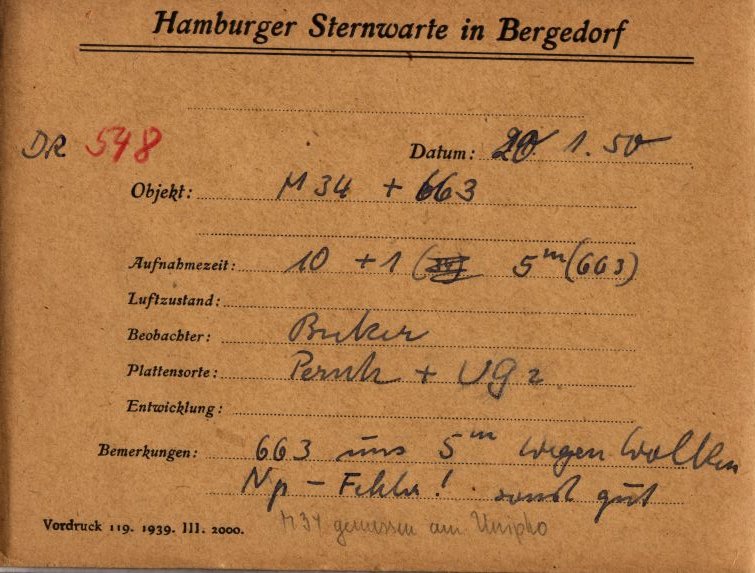 Hamburger Sternwarte in Bergedorf
DR 548
Datum: 20 1. 50
Objekt: M 34 + 663
Aufnahmezeit: 10 + 1 ( 5ᵐ (663)
Luftzustand:
Beobachter:
Plattensorte: + UG 2
Entwicklung:
Bemerkungen: 663 5ᵐ wegen Wolken
Np - Fehler! sonst gut
Vordruck 119. 1939. III. 2000.
M34 gemessen am